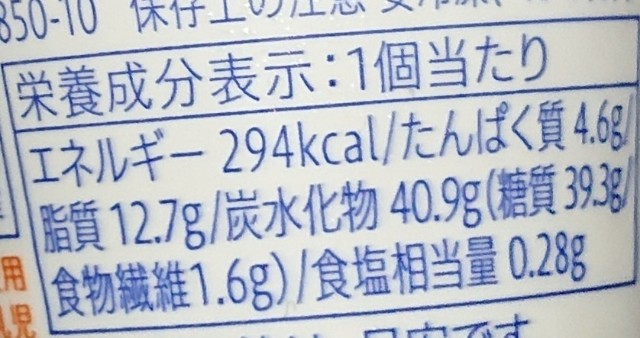 850-10 保存上の注意 要冷凍
栄養成分表示:1個当たり
エネルギー 294kcal/たんぱく質 4.6g/
脂質 12.7g/炭水化物 40.9g(糖質 39.3g/
食物繊維1.6g)/食塩相当量 0.28g
用
乳児
目安です